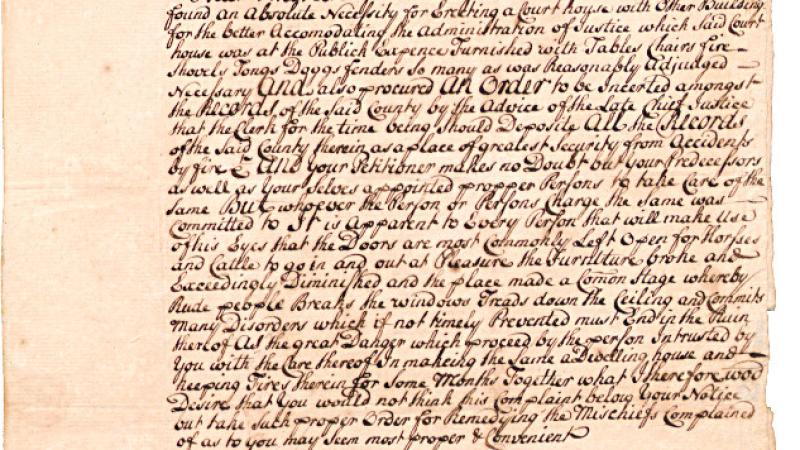 found an Absolute Necessity for Erecting a Court house with Other Building
for the better Accomodating the Administration of Justice which Said Court
house was at the Publick Expence Furnished with Tables Chairs fire
Shovels Tongs Doggs fenders So many as was Reasonably Adjudged
Necessary And also procured an Order to be Incerted amongst
the Records of the Said County by the Advice of the Late Chief Justice
that the Clerk for the time being Should Deposite All the Records
of the Said County therein as a place of greatest Security from Accidents
by fire & And your Petitioner makes no Doubt but your Predecessors
as well as Your Selves appointed propper Persons to take Care of the
Same But whoever the Person or Persons Charge the Same was
Committed to It is Apparent to Every Person that will make Use
of his Eyes that the Doors are most Commonly Left Open for Horses
and Cattle to go in and out at Pleasure the Furniture broke and
Exceedingly Diminished and the place made a Comon Stage whereby
Rude people Breaks the windows Treads down the Ceiling and Committs
Many Disorders which if not timely Prevented must End in the Ruin
therof As the great Danger which proceed by the person Intrusted by
You with the Care thereof In makeing the Same a Dwelling house and
keeping Fires therein for Some Months Together what I therefore
Desire that You would not think this Complaint below Your Notice
but take Such proper Order for Remedying the Mischiefs Complained
of as to you may Seem most proper & Convenient